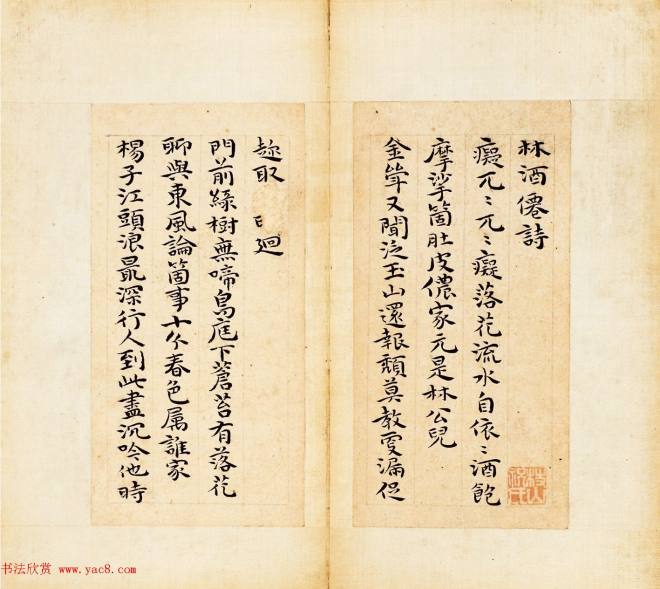 林酒僊詩
癡兀〻兀〻癡落花流水自依〻酒飽
摩挲箇肚皮儂家元是林公兒
金又聞泛玉山還報頽莫教更漏促
趂取 廻
門前綠樹無啼鳥庭下蒼苔有落花
聊與東風論箇事十分春色属誰家
楊子江頭浪最深行人到此盡沉吟他時
书法欣赏 www.yac8.com